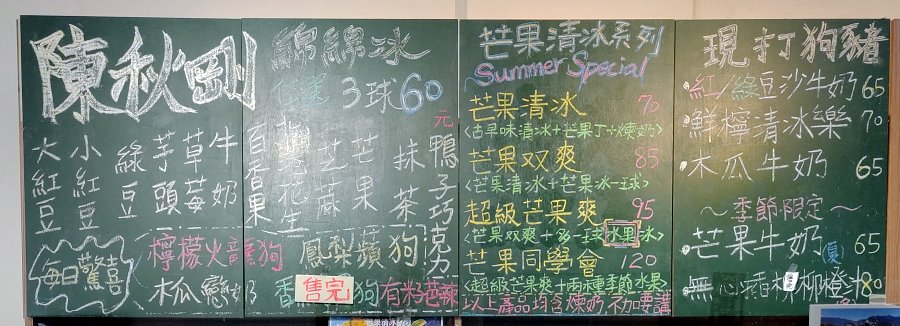 陳秋岡
綿綿冰
任選 3球60元
大紅豆
小紅豆
綠豆
芋頭
草莓
牛奶
百香果
花生
芝麻
芒果
抹茶
鴨子巧克力
每日驚喜
檸檬火龍狗
鳳梨蘋狗
木瓜戀奶
香 售完 狗
有籽芭辣
芒果清冰系列
Summer Special
芒果清冰 70
<古早味清冰+芒果丁+煉奶>
芒果双爽 85
<芒果清冰+芒果冰一球>
超級芒果爽 95
<芒果双爽+多一球水果冰>
芒果同學會 120
<超級芒果爽+兩種季節水果>
以上產品均含煉奶,勿加要講
現打狗豬
紅/綠豆沙牛奶 65
鮮檸清冰樂 70
木瓜牛奶 65
~季節限定~
芒果牛奶(夏) 65
無心插柳柳橙汁 80